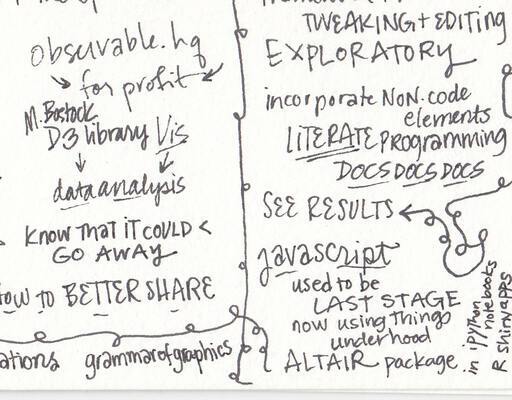 observable.hq
for profit
M. Bostock
D3 library Vis
data analysis
KNOW THAT IT COULD <
GO AWAY
HOW TO BETTER SHARE
grammar of graphics
TWEAKING + EDITING
EXPLORATORY
incorporate NON.code
elements
LITERATE programming
DOCS DOCS DOCS
SEE RESULTS
javascript
used to be
LAST STAGE
now using things
under hood
ALTAIR package.
in iPython
notebooks
R shiny APPS